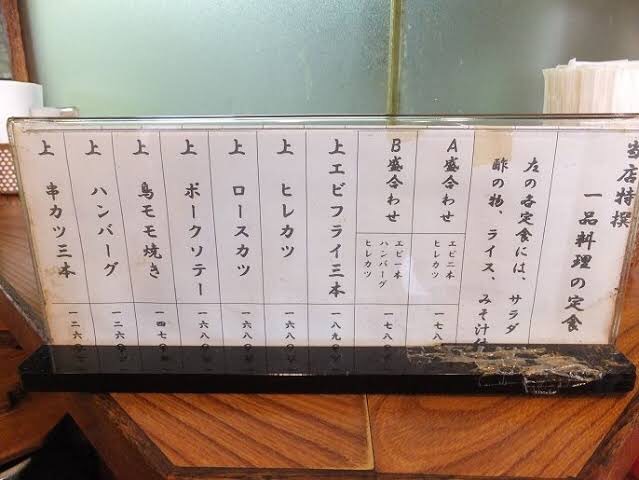 当店特撰
一品料理の定食
左の各定食には、サラダ
酢の物、ライス、みそ汁付
A盛合わせ
エビ二本
ヒレカツ
一七八
B盛合わせ
エビ一本
ハンバーグ
ヒレカツ
一七八〇
上エビフライ三本
一八九〇
上 ヒレカツ
一六八〇
上 ロースカツ
一六八〇
上 ポークソテー
一六八〇
上 鳥モモ焼き
一四七〇
上 ハンバーグ
一二六〇
上 串カツ三本
一二六〇